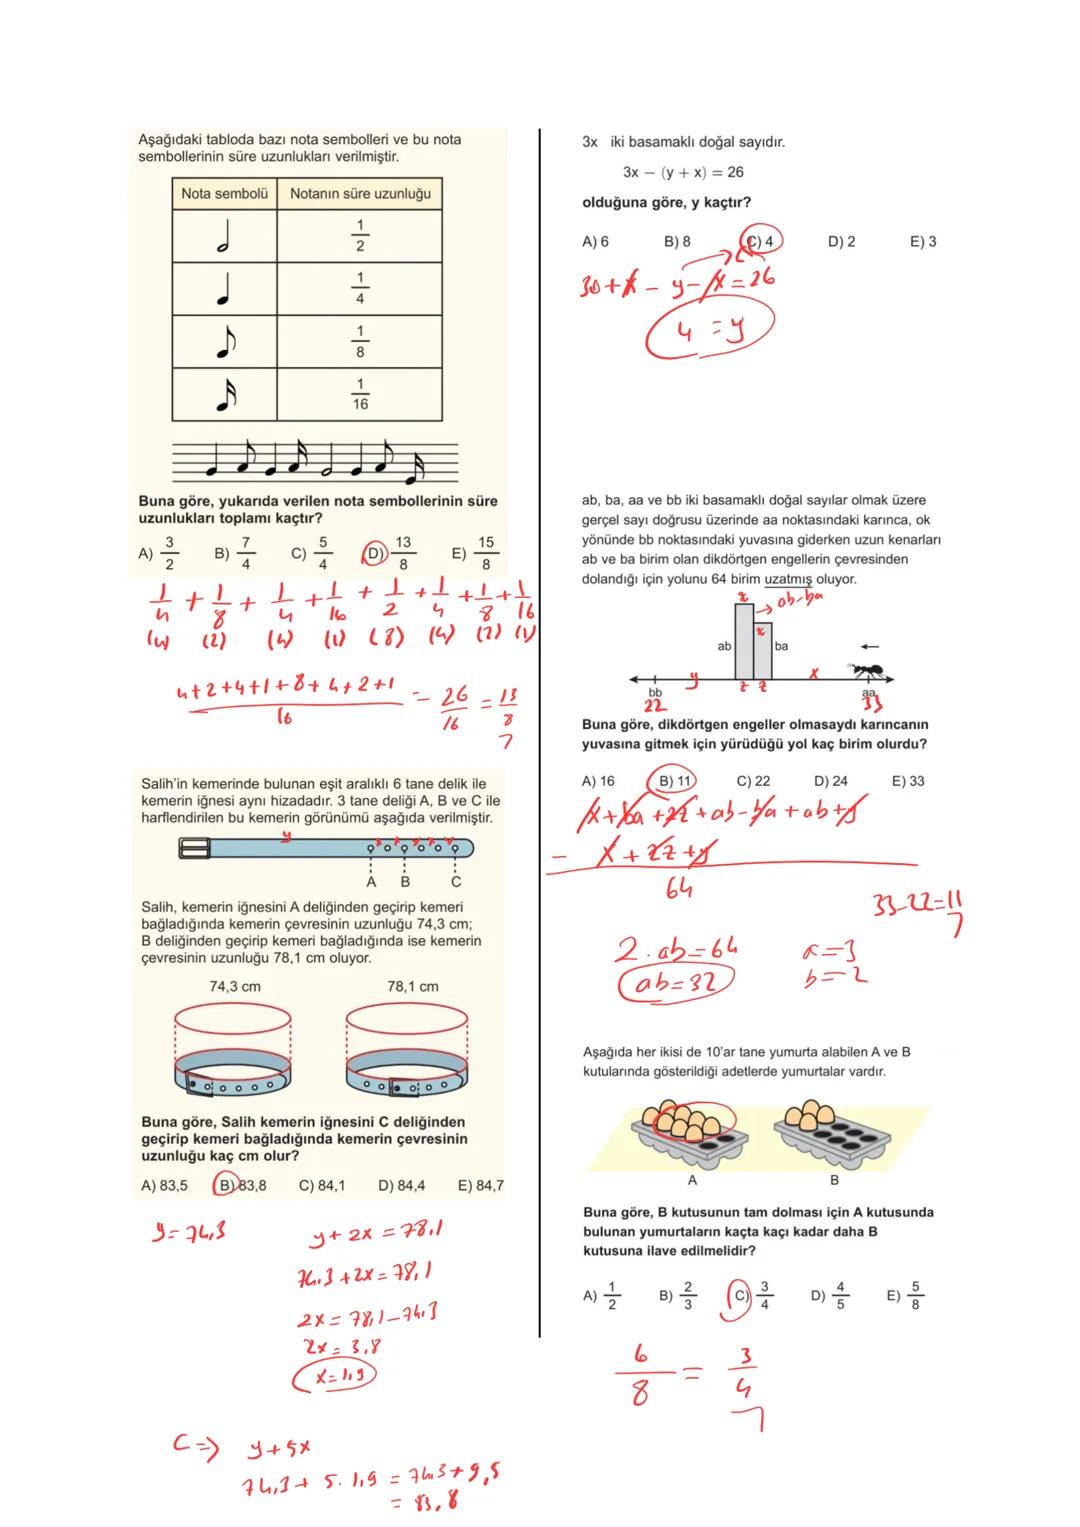 Aşağıdaki tabloda bazı nota sembolleri ve bu nota
sembollerinin süre uzunlukları verilmiştir.
Nota sembolü Notanın süre uzunluğu
1/2
1/4
1/8
1/16
Buna göre, yukarıda verilen nota sembollerinin süre
uzunlukları toplamı kaçtır?
A) 3/2 B) 7/4 C) 5/4 D) 13/8 E) 15/8
1/4 + 1/8 + 1/4 + 1/16 + 1/2 + 1/4 + 1/8 + 1/16
(4) (2) (4) (1) (8) (4) (2) (1)
4+2+4+1+8+4+2+1/16 = 26/16 = 13/8
Salih'in kemerinde bulunan eşit aralıklı 6 tane delik ile
kemerin iğnesi aynı hizadadır. 3 tane deliği A, B ve C ile
harflendirilen bu kemerin görünümü aşağıda verilmiştir.
y x x x x x
A B C
Salih, kemerin iğnesini A deliğinden geçirip kemeri
bağladığında kemerin çevresinin uzunluğu 74,3 cm;
B deliğinden geçirip kemeri bağladığında ise kemerin
çevresinin uzunluğu 78,1 cm oluyor.
74,3 cm 78,1 cm
Buna göre, Salih kemerin iğnesini C deliğinden
geçirip kemeri bağladığında kemerin çevresinin
uzunluğu kaç cm olur?
A) 83,5 B) 83,8 C) 84,1 D) 84,4 E) 84,7
y = 74,3
y + 2x = 78,1
74,3 + 2x = 78,1
2x = 78,1 - 74,3
2x = 3,8
x = 1,9
C => y + 5x
74,3 + 5. 1,9 = 74,3 + 9,5
= 83,8
3x iki basamaklı doğal sayıdır.
3x − (y + x) = 26
olduğuna göre, y kaçtır?
A) 6 B) 8 C) 4 D) 2 E) 3
30 + x - y - x = 26
4 = y
ab, ba, aa ve bb iki basamaklı doğal sayılar olmak üzere
gerçel sayı doğrusu üzerinde aa noktasındaki karınca, ok
yönünde bb noktasındaki yuvasına giderken uzun kenarları
ab ve ba birim olan dikdörtgen engellerin çevresinden
dolandığı için yolunu 64 birim uzatmış oluyor.
z ab-ba
z
ab ba
y z z x
bb aa
22 33
Buna göre, dikdörtgen engeller olmasaydı karıncanın
yuvasına gitmek için yürüdüğü yol kaç birim olurdu?
A) 16 B) 11 C) 22 D) 24 E) 33
x + ba + 2z + ab - ba + ab + y
- x + 2z + y
64
33-22=11
2.ab = 64 a = 3
ab = 32 b = 2
Aşağıda her ikisi de 10'ar tane yumurta alabilen A ve B
kutularında gösterildiği adetlerde yumurtalar vardır.
A B
Buna göre, B kutusunun tam dolması için A kutusunda
bulunan yumurtaların kaçta kaçı kadar daha B
kutusuna ilave edilmelidir?
A) 1/2 B) 2/3 C) 3/4 D) 4/5 E) 5/8
6/8 = 3/4